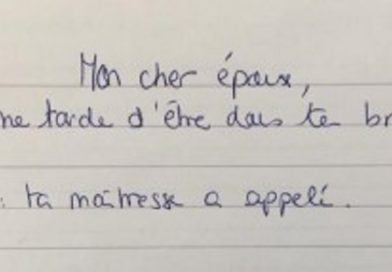 Mon cher époux,
me tarde d'être dans te br
: ta maîtresse a appelé.